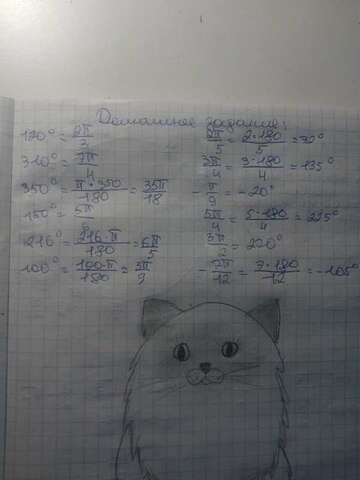 Домашнее задание:
120° = 2π/3
310° = 7π/4
350° = π·350/180 = 35π/18
150° = 5π
216° = 216·π/180 = 6π/5
100° = 100·π/180 = 5π/9
2π/5 = 2·180/5 = 70°
3π/4 = 3·180/4 = 135°
-π/9 = -20°
5π/4 = 5·180/4 = 225°
= 270°
-7π/12 = 7·180/12 = -105°